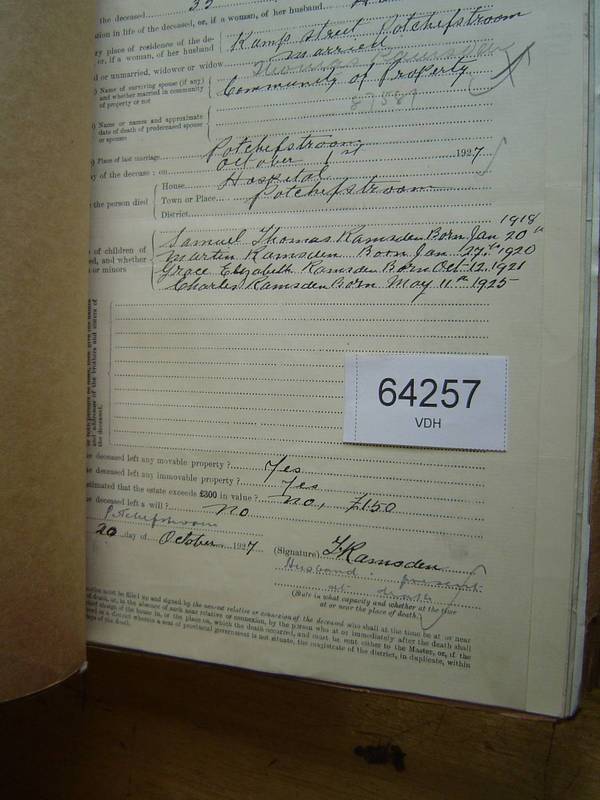 the deceased 35
tion in life of the deceased, or, if a woman, of her husband
ry place of residence of the de-
or, if a woman, of her husband Kamp Street Potchefstroom
d or unmarried, widower or widow married
Name of surviving spouse (if any)
and whether married in community
of property or not
Thomas Ramsden
Community of Property
87589
Name or names and approximate
date of death of predeceased spouse
or spouses
Place of last marriage Potchefstroom
y of the decease : on October 1st 1927
the person died
House Hospital
Town or Place Potchefstroom
District
e of children of
ed, and whether
s or minors
1918
Samuel Thomas Ramsden Born Jan 20th
Martin Ramsden Born Jan 27th 1920
Grace Elizabeth Ramsden Born Oct 12 1921
Charles Ramsden Born May 11th 1925
and addresses of the brothers and sisters of
the deceased.
64257
VDH
e deceased left any movable property ? Yes
e deceased left any immovable property ? Yes
estimated that the estate exceeds £300 in value ? no, £150
e deceased left a will ? no
Potchefstroom
20 day of October 1927
(Signature) T Ramsden
Husband present
at death
(State in what capacity and whether at the time
at or near the place of death.)
must be filled up and signed by the nearest relative or connexion of the deceased who shall at the time be at or near
of death, or, in the absence of such near relative or connexion, by the person who at or immediately after the death shall
chief charge of the house in, or the place on, which the death occurred, and must be sent either to the Master, or, if the
red in a district wherein a seat of provincial government is not situate, the magistrate of the district, in duplicate, within
days of the death.